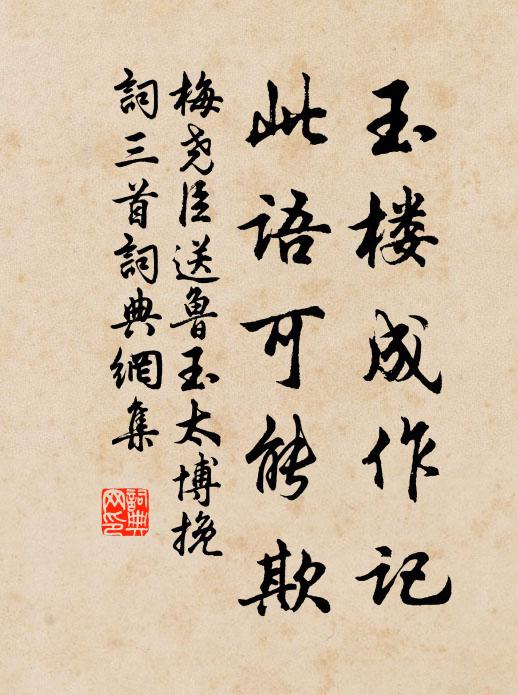 玉楼成作记
此语可能欺
梅尧臣送鲁玉太博挽
词三首词典網集
詞典网印